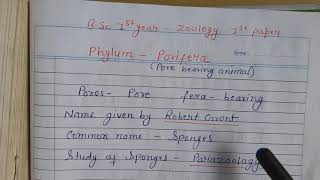 B.Sc Ist year - Zoology Ist paper
Phylum - Porifera
(Pore bearing animal)
Poros - Pore fera - bearing
Name given by Robert Grant
Common name - Sponges
Study of Sponges - Parazoology